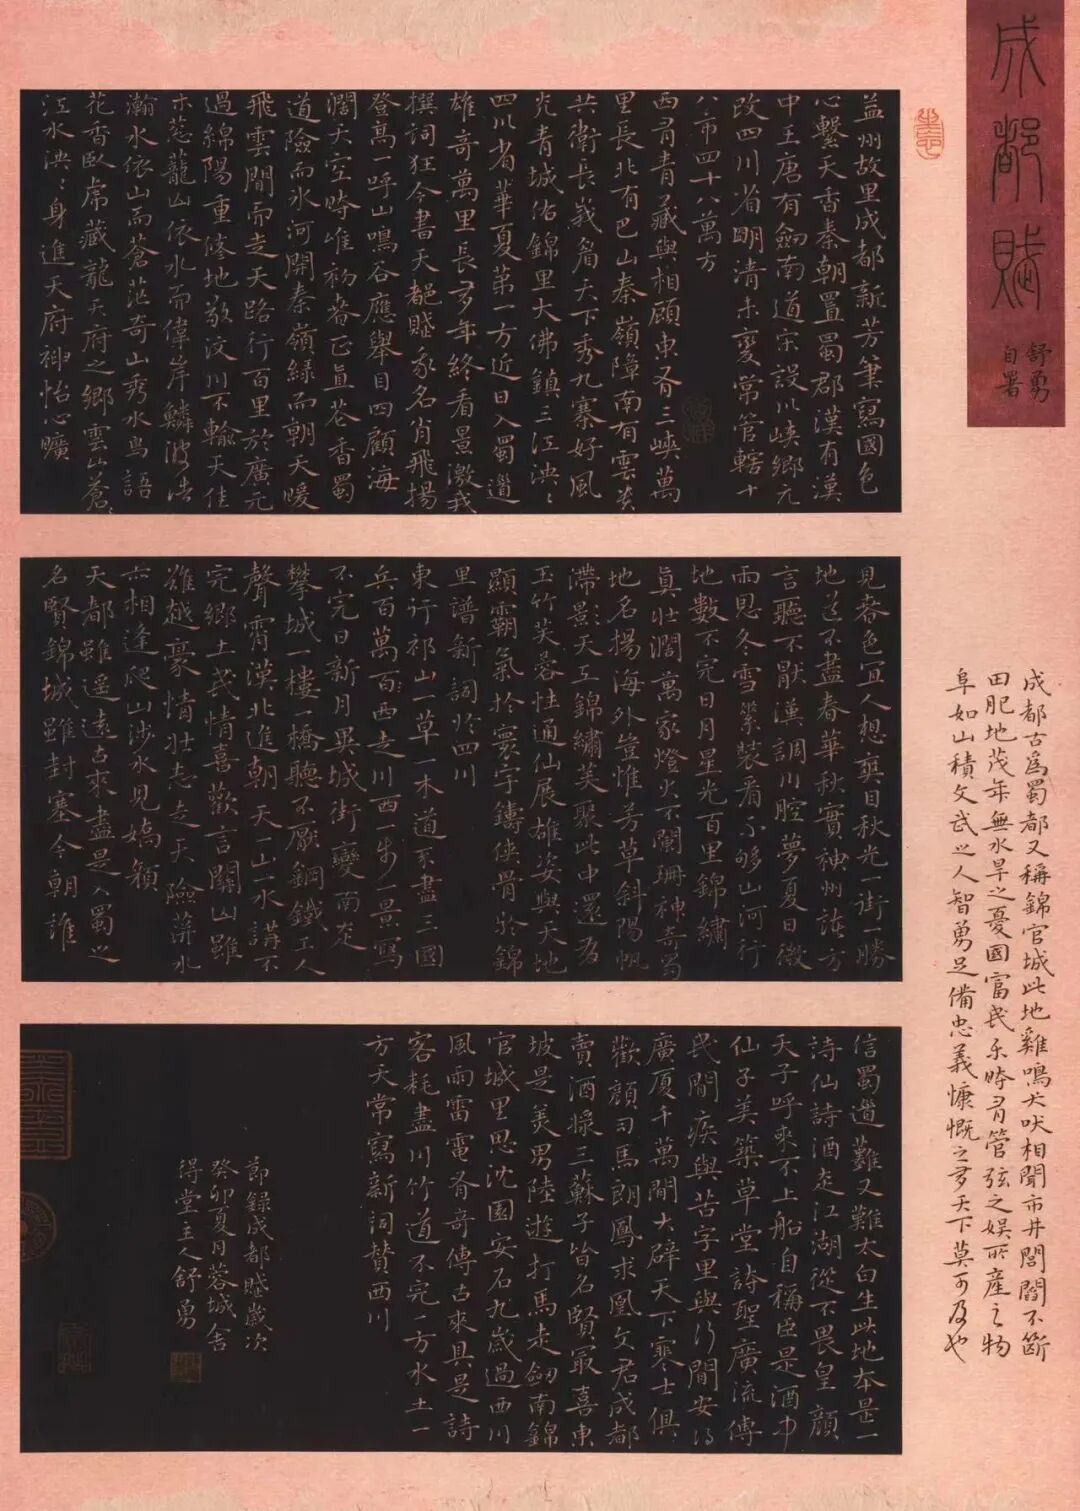 成都賦
舒勇
自署
益州故里成都新芳筆寫國色
心繫天香秦朝置蜀郡漢有漢
中王唐有劍南道宋設川峽鄉元
改四川省明清未變常管轄十
八市四十八萬方
西有青藏與相顧東有三峽萬
里長北有巴山秦嶺障南有雲貴
共衛長峨眉天下秀九寨好風
光青城佑錦里大佛鎮三江泱〻
四川省華夏第一方近日入蜀道
雄奇萬里長多年終看景激我
撰詞狂今書天都賦家名肖飛揚
登高一呼山鳴谷應舉目四顧海
濶天空時唯初春正直花香蜀
道險而氷河開秦嶺綠而朝天暖
飛雲間而走天路行百里於廣元
過綿陽重修地敬汶川不輸天佳
木葱蘢山依水而偉岸鱗波浩
瀚水依山而蒼茫奇山秀水鳥語
花香臥虎藏龍天府之鄉雲山蒼〻
江水泱〻身進天府神怡心曠
見春色宜人想爽目秋光一街一勝
地道不盡春華秋實神州誰方
言聽不厭漢調川腔夢夏日微
雨思冬雪素裝看不够山河行
地數不完日月星光百里錦繡
真壯濶萬家燈火不闌珊神奇蜀
地名揚海外豈惟芳草斜陽帆
滯影天工錦繡美聚此中還有
玉竹芙蓉性通仙展雄姿與天地
顯霸氣於寰宇鑄俠骨於錦
里譜新詞於四川
東行祁山一草一木道不盡三國
兵百萬西走川西一步一景寫
不完日新月異城街變南走
攀城一樓一橋聽不厭鋼鐵工人
聲霄漢北進朝天一山一水講不
完鄉土民情喜歡言關山雖
難越豪情壯志走天險萍水
六相逢爬山涉水見嬌顏
天都雖遥遠古來盡是入蜀之
名賢錦城雖封塞今朝誰
信蜀道難又難太白生此地本是一
詩仙詩酒走江湖從不畏皇顏
天子呼來不上船自稱臣是酒中
仙子美築草堂詩聖廣流傳
民間疾與苦字里與行間安得
廣厦千萬間大辟天下寒士俱
歡顏司馬朗鳳求凰文君成都
賣酒悿三蘇子皆名賢最喜東
坡是美男陸游打馬走劍南錦
官城里思沈園安石九歲過西川
風雨雷電有奇傳古來具是詩
客耗盡川竹道不完一方水土一
方天常寫新詞贊西川
節錄成都賦歲次
癸卯夏月蓉城舍
得堂主人舒勇
成都古爲蜀都又稱錦官城此地雞鳴犬吠相聞市井閭閻不斷
田肥地茂年無水旱之憂國富民樂時有管弦之娛所產之物
阜如山積文武之人智勇足備忠義慷慨之多天下莫可及也